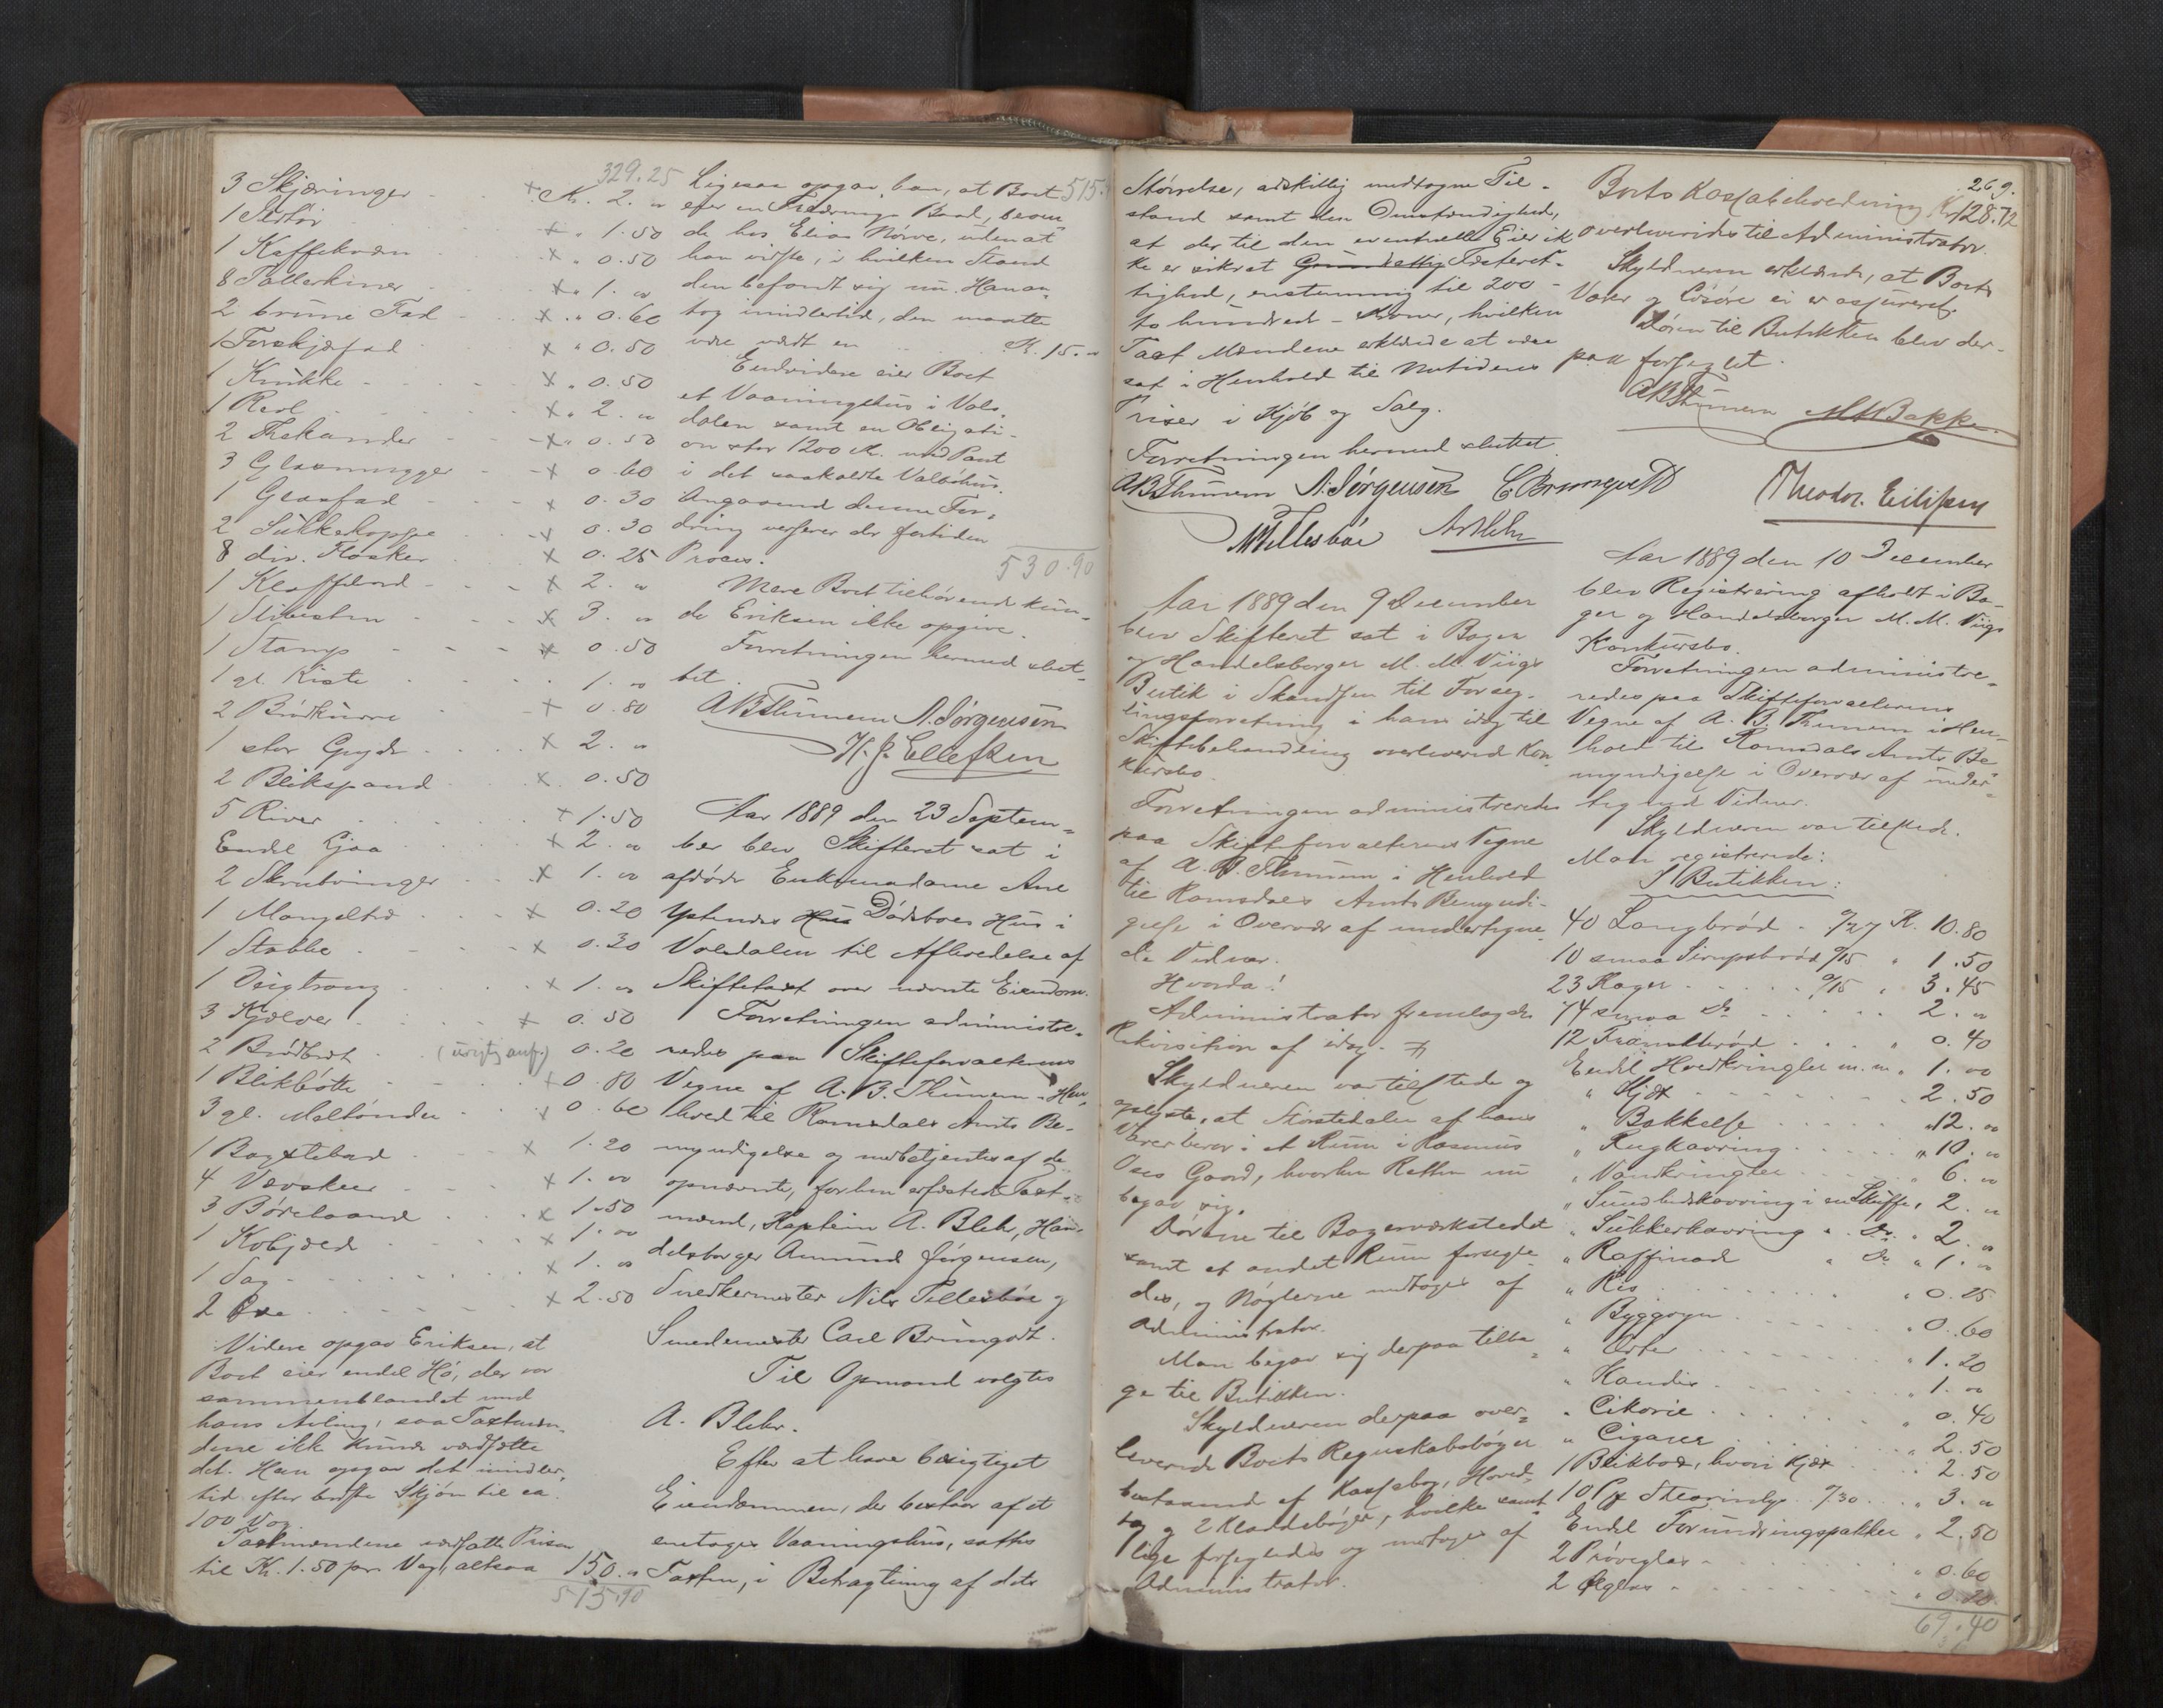 329.25
3 Skjæringer + Kr. 2. "
1 Sertör + " 1.50
1 Kaffekværn + " 0.50
8 Tallerkiner + " 1. "
2 brune Fad + " 0.60
1 Torskjefad + " 0.50
1 Krukke + " 0.50
1 Reol + " 2. "
2 Thekander + " 0.50
3 Glasmugger + 0.60
1 Glasfad + 0.30
2 Sukkerkoppe + 0.30
8 div. Flasker + 0.25
1 Klaffebord + 2. "
1 Slibesten + 3. "
1 Stamp + 0.50
1 gl. Kiste 1. "
2 Brödkurve + 0.80
1 stor Gryde + 2. "
2 Blikspand + 0.50
5 River + 1.50
Endel Ljaa + 2. "
2 Skrubvinger + 1. "
1 Mangeltræ + 0.20
1 Stabbe + 0.30
1 Deigtraug + 1. "
3 Kjelver + 0.50
2 Brödbret 0.20
1 Blikbötte + 0.80
3 gl. Meltönder + 0.60
1 Bagstebord + 1.20
4 Vævskeer + 1. "
3 Börebaand + 1.50
1 Kobjæld + 1. "
1 Sag + 1. "
2 Öxe + 2.50
Videre opgav Eriksen, at
Boet eier endel Hö, der var
sammenblandet med
hans Avling, saa Taxtmæn-
dene ikke kunde værdsætte
det. Han opgav det imidler-
tid efter bedste Skjön til ca.
100 Vog.
Taxtmændene ansatte Prisen
til Kr. 1.50 pr. Vog, altsaa 150. "
515.90
Ligesaa opgav han, at Boet 515.
eier en Færings Baad, beroen-
de hos Elias Nörve, uden at
han vidste, i hvilken Stand
den befandt sig nu. Han an-
tog imidlertid, den maatte
være værdt en Kr. 15. "
Endvidere eier Boet
et Vaaningshus i Vols-
dalen samt en Obligati-
on stor 1200 Kr. med Pant
i det saakaldte Volsöhus.
Angaaende denne For-
dring verserer der fortiden
Proces.
530.90
Mere Boet tilhörende kun-
de Eriksen ikke opgive.
Forretningen hermed slut-
tet.
A B Thunem A. Jørgensen
H. J. Ellefsen
Aar 1889 den 23 Septem-
ber blev Skifteret sat i
afdöde Enkemadame Ane
Ystenes Hus Dödsboes Hus i
Volsdalen til Afholdelse af
Skiftetaxt over nævnte Eiendom.
Forretningen administre-
redes paa Skifteforvalterens
Vegne af A. B. Thunem i Hen-
hold til Romsdals Amts Be-
myndigelse og medbetjentes af de
opnævnte, forhen edfæstede Taxt-
mænd, Kaptein A. Blehr, Han-
delsborger Amund Jörgensen,
Snedkermester Nils Tellesböe og
Smedemester Carl Brungodt.
Til Opmand valgtes
A. Blehr.
Efter at have besigtiget
Eiendommen, der bestaar af et
enetages Vaaningshus, sattes
Taxten, i Betragtning af dets
Störrelse, adskillig medtagne Til-
stand samt den Omstændighed,
at der til den eventuelle Eier ik-
ke er sikret Grundettig Fæsteret-
tighed, enstemmig til 200 -
to hundrede - Kroner, hvilken
Taxt Mændene erklærede at være
sat i Henhold til Nutidens
Priser i Kjöb og Salg.
Forretningen hermed sluttet.
A B Thunem A. Jørgensen C Brungodt
N Tellesböe A Blehr
Aar 1889 den 9 December
blev Skifteret sat i Bager
og Handelsborger M. M. Viigs
Butik i Skandsen til Forseg-
lingsforretning i hans idag til
Skiftebehandling overleverede Kon-
kursbo.
Forretningen administreredes
paa Skifteforvalterens Vegne
af A. B. Thunem i Henhold
til Romsdals Amts Bemyndi-
gelse i Overvær af undertegne-
de Vidner.
Hvorda!
Administrator fremlagde
Rekvisition af idag.
Skyldneren var tilstede og
oplyste, at Störstedelen af hans
Varer beror i et Rum i Rasmus
Oses Gaard, hvorhen Retten nu
begav sig.
Dörene til Bagerværkstedet
samt et andet Rum forsegle-
des, og Nöglerne modtoges af
Administrator.
Man begav sig derpaa tilba-
ge til Butikken.
Skyldneren derpaa over-
leverede Boets Regnskabsböger
bestaaende af Kassabog, Hoved-
bog og 2 Kladdeböger, hvilke samt-
lige forsegledes og modtoges af
Administrator.
269.
Boets Kassabeholdning Kr 128.72
overleveredes til Administrator.
Skyldneren erklærede, at Boets
Varer og Lösöre ei er assureret.
Dören til Butikken blev der-
paa forseglet.
A B Thunem M K Bakke
Theodor. Eilifsen
Aar 1889 den 10 December
blev Registrering afholdt i Ba-
ger og Handelsborger M. M. Viigs
Konkursbo.
Forretningen administre-
redes paa Skifteforvalterens
Vegne af A. B. Thunem i Hen-
hold til Romsdals Amts Be-
myndigelse i Overvær af under-
tegnede Vidner.
Skyldneren var tilstede.
Man registrerede:
I Butikken:
40 Langbröd a/27 Kr. 10.80
10 smaa Sirupsbröd a/15 " 1.50
23 Kager a/15 " 3.45
74 smaa do 2. "
12 Franskbröd " 0.40
Endel Hvedekringler m. m. " 1. "
" Kjæx 2.50
" Bakkelse " 12. "
" Rugkavring " 10. "
" Vandkringler " 6. "
" Sundhedskavring i en Skuffe " 2. "
" Sukkerkavring " do " 2. "
" Raffinad " do " 1. "
" Ris " 0.25
" Byggryn " 0.60
" Erter " 1.20
" Kandis " 1. "
" Cikorie " 0.40
" Cigarer " 2.50
1 Blikbox, hvori Kjæx " 2.50
10 Px Stearinlys a/30 " 3. "
Endel Forundringspakker " 2.50
2 Pröveglas " 0.60
2 Ølglas " 0.20
69.40